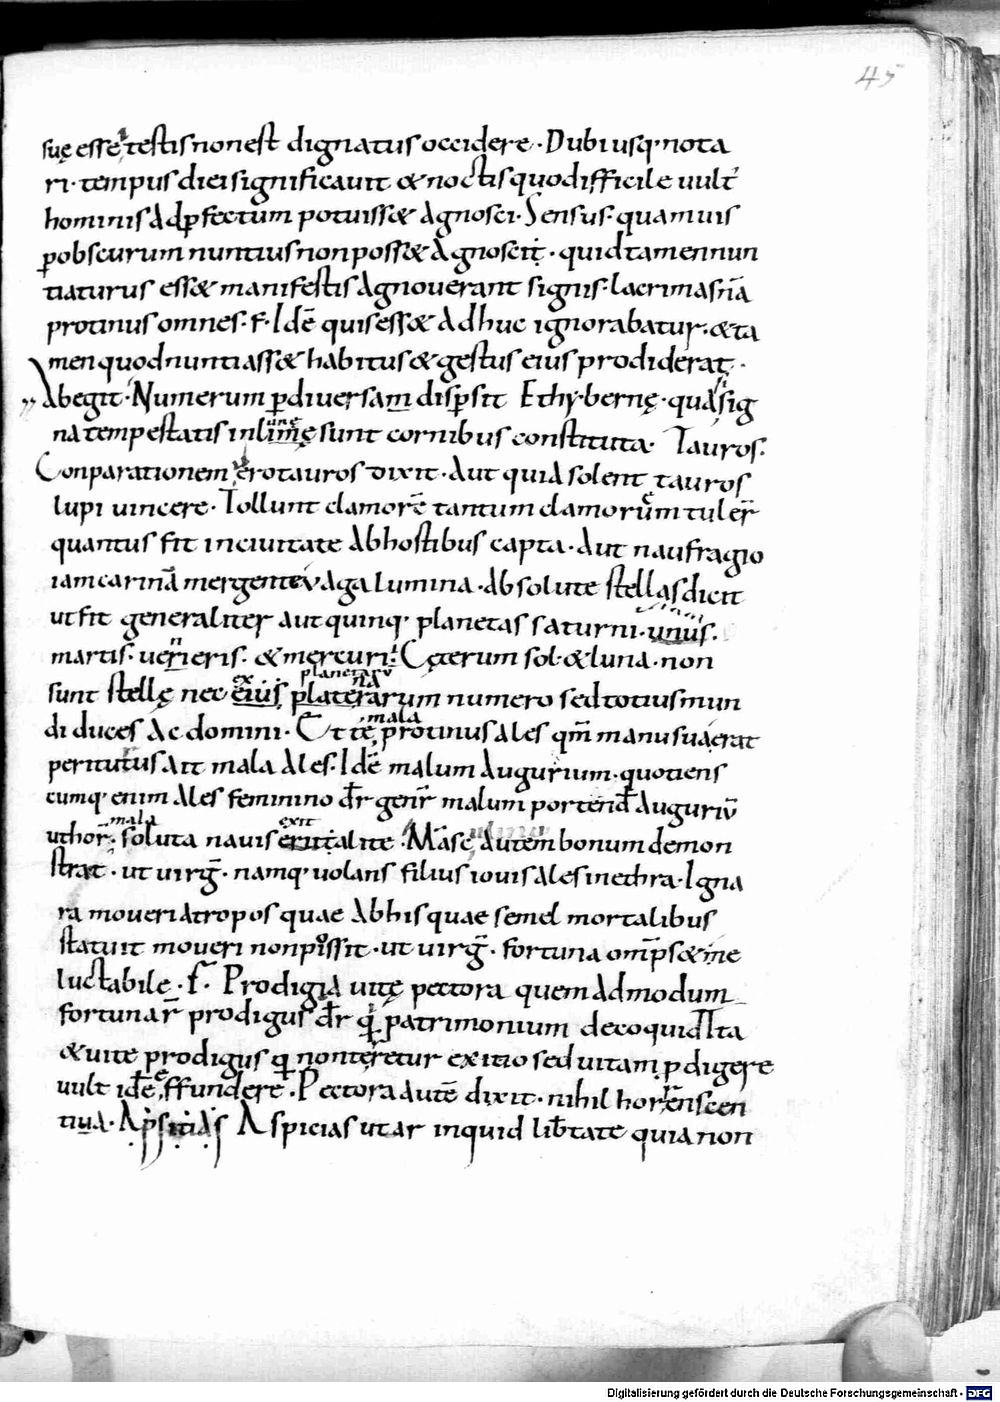 45
suę esse testis non est dignatus occidere · Dubiusq; nota
ri · tempus diei significauit & noctis quo difficile uult̄
hominis ad ꝑfectum potuiss& agnosci · Sensus · quamuis
ꝑ obscurum nuntius non poss& agnosci · quid tamen nun
tiaturus ess& manifestis agnouerant signis · lacrimas n̄a
protinus omnes · f · Idē quis ess& adhuc ignorabatur · & ta
men quod nuntiass& habitus & gestus eius prodiderat ·
Abegit · Numerum ꝑ diuersam disꝑsit Ethy · bernę · quasi sig
na tempestatis in sunt cornibus constituta · Tauros ·
Conparationem uero tauros dixit · aut quia solent tauros
lupi uincere · Tollunt clamorē tantum clamorum tuler̄
quantus fit in ciuitate ab hostibus capta · aut naufragio
iam carina mergente uaga lumina · absolute stellas dicit
ut fit generaliter aut quinq; planetas saturni ·
martis · ueneris · & mercuri · Cęterum sol · & luna · non
planetarū
sunt stellę nec ex numero sed totius mun
mala
di duces ac domini · Et te protinus ales qm̄ manu sua erat
periturus ait mala ales · Idē malum augurium · quotiens
cumq; enim ales feminino dr̄ gen̄r malum portend& auguriū
mala exit
ut hor̄ · soluta nauis alite · Masc autem bonum demon
strat · ut uirḡ · namq; uolans filius iouis ales in ethra · Igna
ra moueri atropos quae ab his quae semel mortalibus
statuit moueri non possit · ut uirḡ · fortuna omps & ine
luctabile · f · Prodigia uitę pectora quemadmodum
fortunar̄ prodigus dr̄ patrimonium decoquid Ita
& uite prodigus non teretur exitio sed uitam ꝑdigere
uult idē effundere · Pectora autē dixit · nihil horrēscen
tiua · Apsitias Aspicias utar inquid lib̄tate quia non
Digitalisierung gefördert durch die Deutsche Forschungsgemeinschaft - DFG